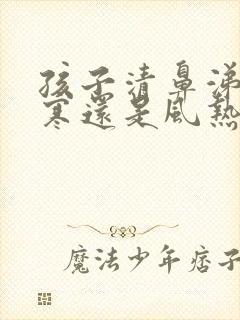 孩子清鼻涕
寒還是風熱
魔法少年痞子